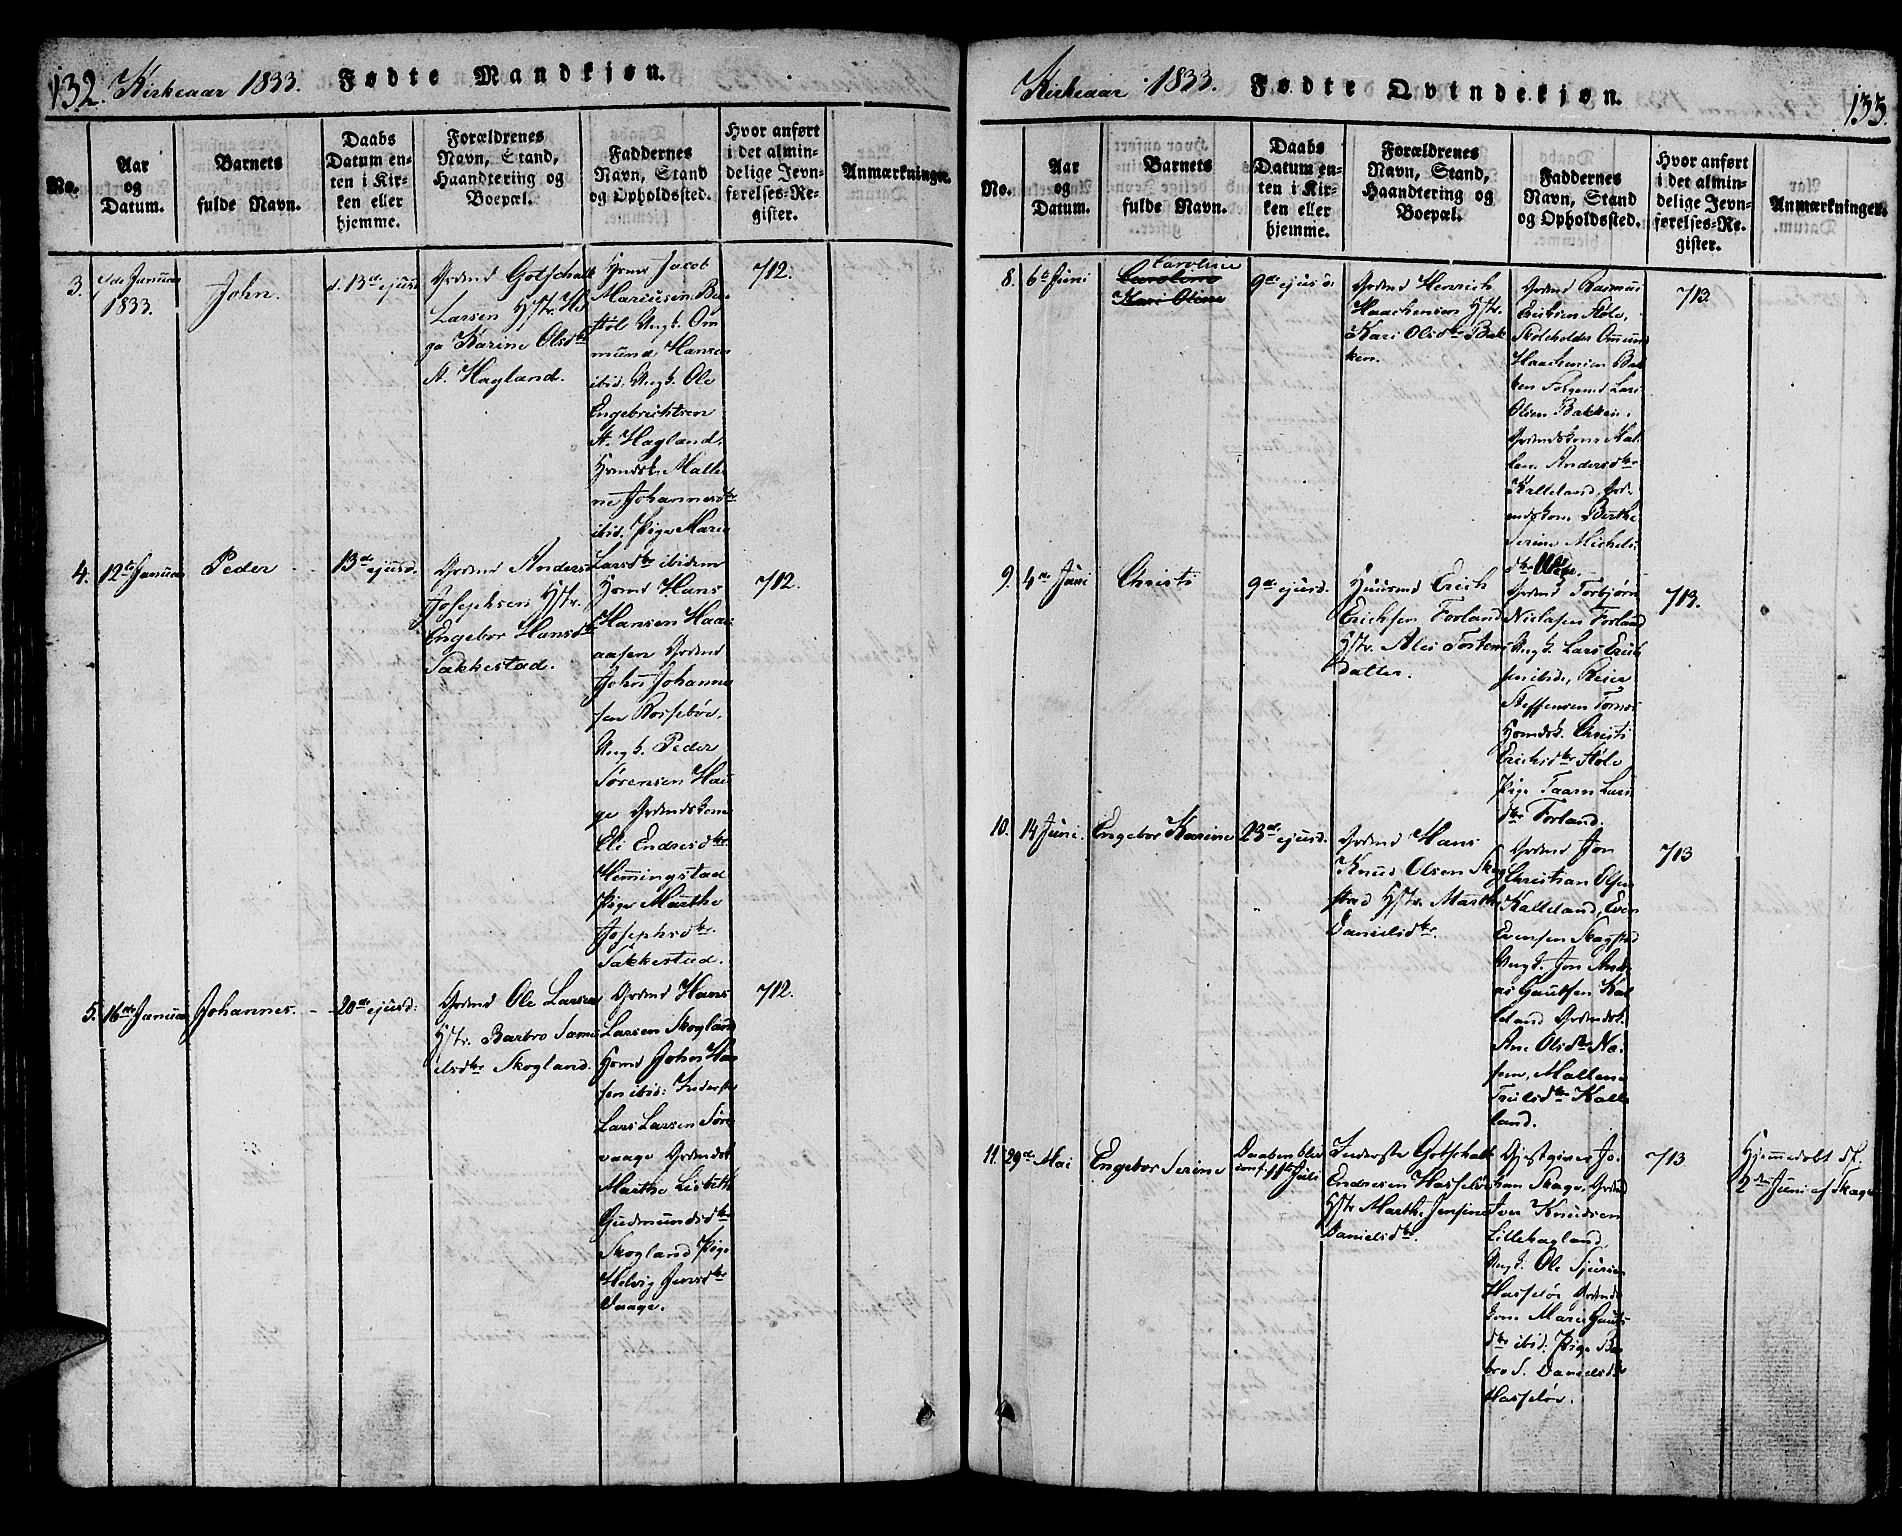 132. Kirkeaar 1833. Fødte Mandkjøn.
No.
Aar
og
Datum.
Barnets
fulde Navn.
Daabs
Datum en-
ten i Kir-
ken eller
hjemme.
Forældrenes
Navn, Stand,
Haandtering og
Boepæl.
Faddernes
Navn, Stand
og Opholdssted.
Hvor anført
i det almin-
delige Jevn-
førelses-Re-
gister.
Anmærkninger.
3.
1833.
John.
d. 13de ejusd.
Grdmd Gotschalk
Larsen Hstr. He
ga Karine Olsdtr
St. Hagland.
Hsmd Jacob
Mariusen
Ungk. Om
mund Hansen
ibid. Ungk. Ole
Engebrichtsen
St. Hagland.
Malle
ne Johannesdtr
ibid. Pige Maren
Larsdtr ibidem
712.
4.
12te Januar
Peder
13de ejusd.
Grdmd Anders
Josephsen Hstr.
Engebor Hansdtr
Sakkestad.
Hsmd Hans
Hansen Haa
aasen Grdmd
John Johanne
sen Rossebøe,
Ungk. Peder
Sørensen Hau
ge Grdmdskone
Eli Endresdtr
Hemmingstad
Pige Marthe
Josephsdtr
Sakkestad.
712.
5.
16de Januar
Johannes.
20de ejusd.
Grdmd Ole Larsen
Hstr. Barbro Samu
elsdtr Skogland.
Grdmd Hans
Larsen Skogland
Hsmd John Han
sen ibid: Inderste
Lars Larsen Søre
vaage Grdmdsk.
Marthe Lisbeth
Gudmundsdtr
Skogland Pige
Helvig Jensdtr
Vaage.
712.
Kirkeaar 1833. Fødte Qvindekjøn. 133.
No.
Aar
og
Datum.
Barnets
fulde Navn.
Daabs
Datum en-
ten i Kir-
ken eller
hjemme.
Forældrenes
Navn, Stand,
Haandtering og
Boepæl.
Faddernes
Navn, Stand
og Opholdssted.
Hvor anført
i det almin-
delige Jevn-
førelses-Re-
gister.
Anmærkninger.
8.
6te Juni
Caroline
Caroline
Kari Oline
9de ejusd.
Grdmd Henrich
Haachensen Hstr.
Kari Olsdtr Bak
ken.
Grdmd Rasmus
Erichsen Støle,
Skoleholder Ommund
Haachensen Bak
ken Lars
Olsen Bakken.
Grdmdskone Mal
lene Andersdtr
Kalleland, Grd
mdskone Berthe
Serine Michels
dtr
713.
9.
4de Juni
Christi
9de ejusd.
Huusmd Erich
Erichsen Forland
Hstr. Alis Tostens
datter.
Grdmd Torbjørn
Niclasen Forland
Ungk. Lars Erich
sen ibid, Reier
Steffensen
Christi
Erichsdtr Støle
Pige Taarn Lars
dtr Forland.
713.
10.
14 Juni.
Engebor Karine
23de ejusd.
Grdmd Hans
Knud Olsen Skog
stad Hstr. Marthe
Danielsdtr.
Grdmd Jon
Christian Olsen
Kalleland, Even
Evensen Skogstad
Ungk. Jon Andr
as Gautsen Kal
leland Grdmdsk.
Ane Olsdtr
Mallene
Kalle
land.
713
11.
29de Mai
Engebor Serine
Daaben blev
conf. 11te Juli
Inderste Gotschalk
Endresen Hasseløe
Hstr. Marthe Jensine
Danielsdtr.
Gjestgiver Jo
han Skage, Grdmd
Iver Knudsen
Lillehagland
Ungk. Ole Sjursen
Hasseløe Grdmds
kone Mari Gauts
dtr ibid. Pige Bar
bro S. Danielsdtr
Hasseløe.
713
Hjemmedøbt d.
2den Juni af Skage